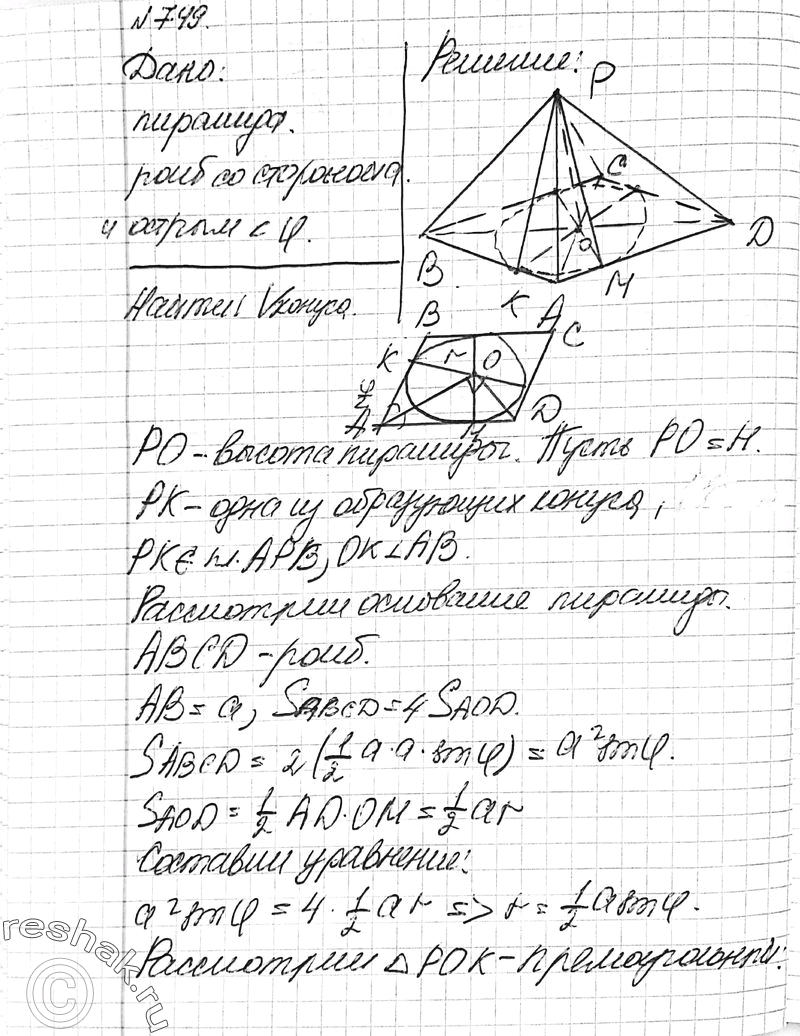 №749.
Дано:
пирамида.
ромб со стороной a.
и острым < φ.
Найти: Vконуса.
Решение:
P
C
O
D
B
K
A
M
B
C
K
r
O
φ/2
A
D
M
PO - высота пирамиды. Пусть PO = H.
PK - одна из образующих конуса,
PK ∈ пл. APB, OK ⊥ AB.
Рассмотрим основание пирамиды.
ABCD - ромб.
AB = a, SABCD = 4 SAOD.
SABCD = 2(1/2 a·a·sinφ) = a² sinφ.
SAOD = 1/2 AD·OM = 1/2 ar
Составим уравнение:
a² sinφ = 4 · 1/2 ar => r = 1/2 a sinφ.
Рассмотрим △ POK - прямоугольный:
reshak.ru
©